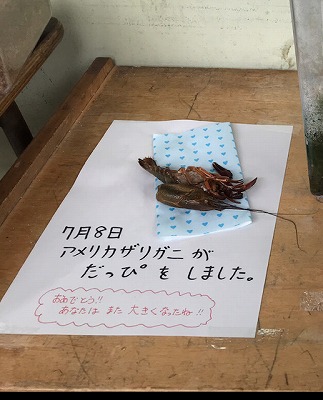 7月8日
アメリカザリガニ が
だっぴ を しました。
おめでとう!!
あなたは また 大きくなったね!!